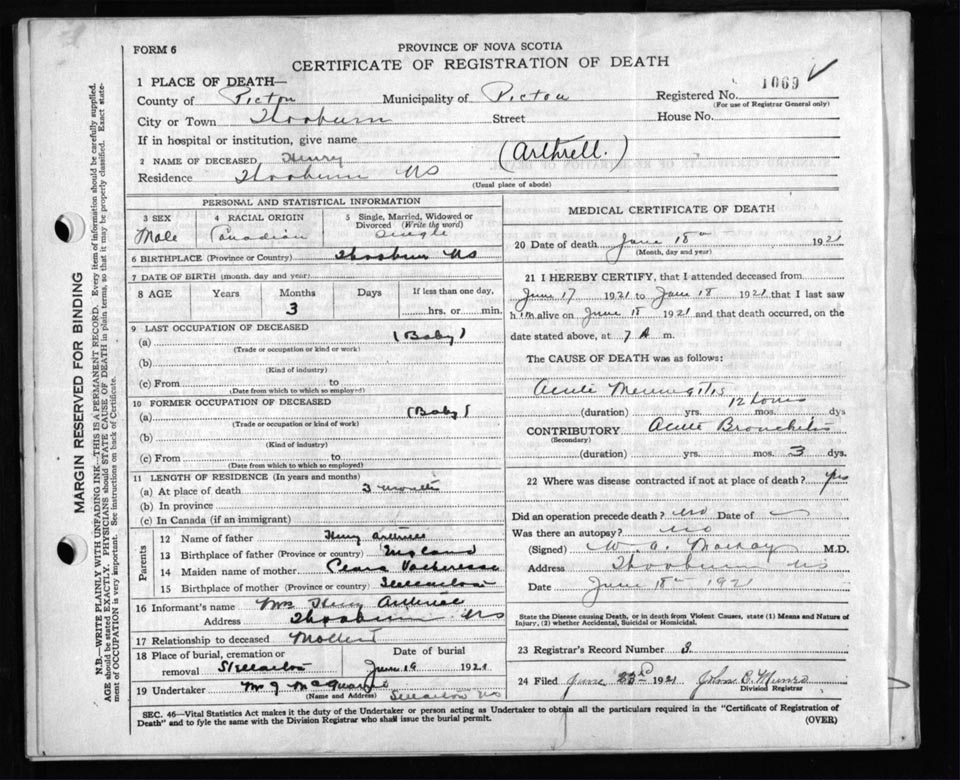 FORM 6
PROVINCE OF NOVA SCOTIA
CERTIFICATE OF REGISTRATION OF DEATH
1 PLACE OF DEATH—
Registered No. 1069
(For use of Registrar General only)
County of Pictou Municipality of Pictou
City or Town Thorburn Street House No.
If in hospital or institution, give name
2 NAME OF DECEASED Henry (Arthrell.)
Residence Thorburn NS
(Usual place of abode)
PERSONAL AND STATISTICAL INFORMATION
3 SEX Male
4 RACIAL ORIGIN Canadian
5 Single, Married, Widowed or Divorced (Write the word) Single
6 BIRTHPLACE (Province or Country) Thorburn NS
7 DATE OF BIRTH (month, day and year)
8 AGE Years Months Days If less than one day,
3 hrs. or min.
9 LAST OCCUPATION OF DECEASED
(a) (Baby)
(Trade or occupation or kind or work)
(b)
(Kind of industry)
(c) From to
(Date from which to which so employed)
10 FORMER OCCUPATION OF DECEASED
(a) (Baby)
(Trade or occupation or kind of work)
(b)
(Kind of industry)
(c) From to
(Date from which to which so employed)
11 LENGTH OF RESIDENCE (In years and months)
(a) At place of death 3 months
(b) In province
(c) In Canada (if an immigrant)
Parents
12 Name of father Henry
13 Birthplace of father (Province or country) England
14 Maiden name of mother Clara
15 Birthplace of mother (Province or country) Stellarton
16 Informant's name Mrs Henry
Address Thorburn NS
17 Relationship to deceased Mother
18 Place of burial, cremation or removal Stellarton
Date of burial
June 19 1921
19 Undertaker Stellarton NS
(Name and Address)
MEDICAL CERTIFICATE OF DEATH
20 Date of death June 18th 1921
(Month, day and year)
21 I HEREBY CERTIFY, that I attended deceased from
June 17 1921 to June 18 1921 that I last saw
him alive on June 18 1921 and that death occurred, on the
date stated above, at 7 A m.
The CAUSE OF DEATH was as follows:
Acute Meningitis
12 hours
(duration) yrs. mos. dys
CONTRIBUTORY Acute Bronchitis
(Secondary)
(duration) yrs. mos. 3 dys.
22 Where was disease contracted if not at place of death? yes
Did an operation precede death? no Date of
Was there an autopsy? no
(Signed) M.D.
Address Thorburn NS
Date June 18th 1921
State the Disease causing Death, or in death from Violent Causes, state (1) Means and Nature of
Injury, (2) whether Accidental, Suicidal or Homicidal.
23 Registrar's Record Number 3
24 Filed June 1921 John Munro
Division Registrar
SEC. 46—Vital Statistics Act makes it the duty of the Undertaker or person acting as Undertaker to obtain all the particulars required in the "Certificate of Registration of
Death" and to fyle the same with the Division Registrar who shall issue the burial permit.
(OVER)
MARGIN RESERVED FOR BINDING
N.B.—WRITE PLAINLY WITH UNFADING INK—THIS IS A PERMANENT RECORD. Every item of information should be carefully supplied.
AGE should be stated EXACTLY. PHYSICIANS should STATE CAUSE OF DEATH in plain terms, so that it may be properly classified. Exact state-
ment of OCCUPATION is very important. See instructions on back of Certificate.